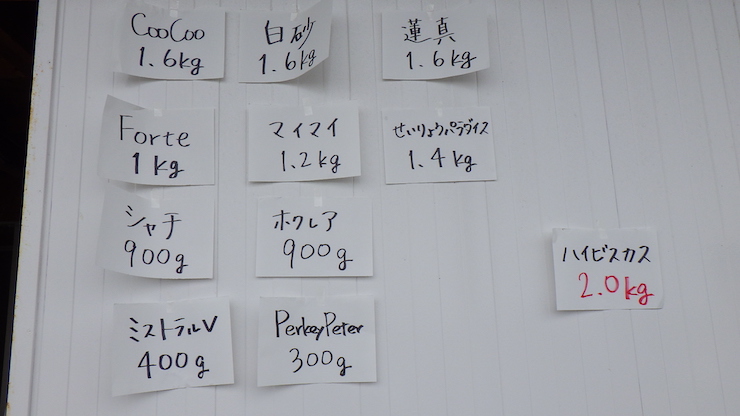 CooCoo
1.6kg
白砂
1.6kg
蓮真
1.6kg
Forte
1kg
マイマイ
1.2kg
せいりょうパラダイス
1.4kg
シャチ
900g
ホクレア
900g
ハイビスカス
2.0kg
ミストラルV
400g
PerkeyPeter
300g